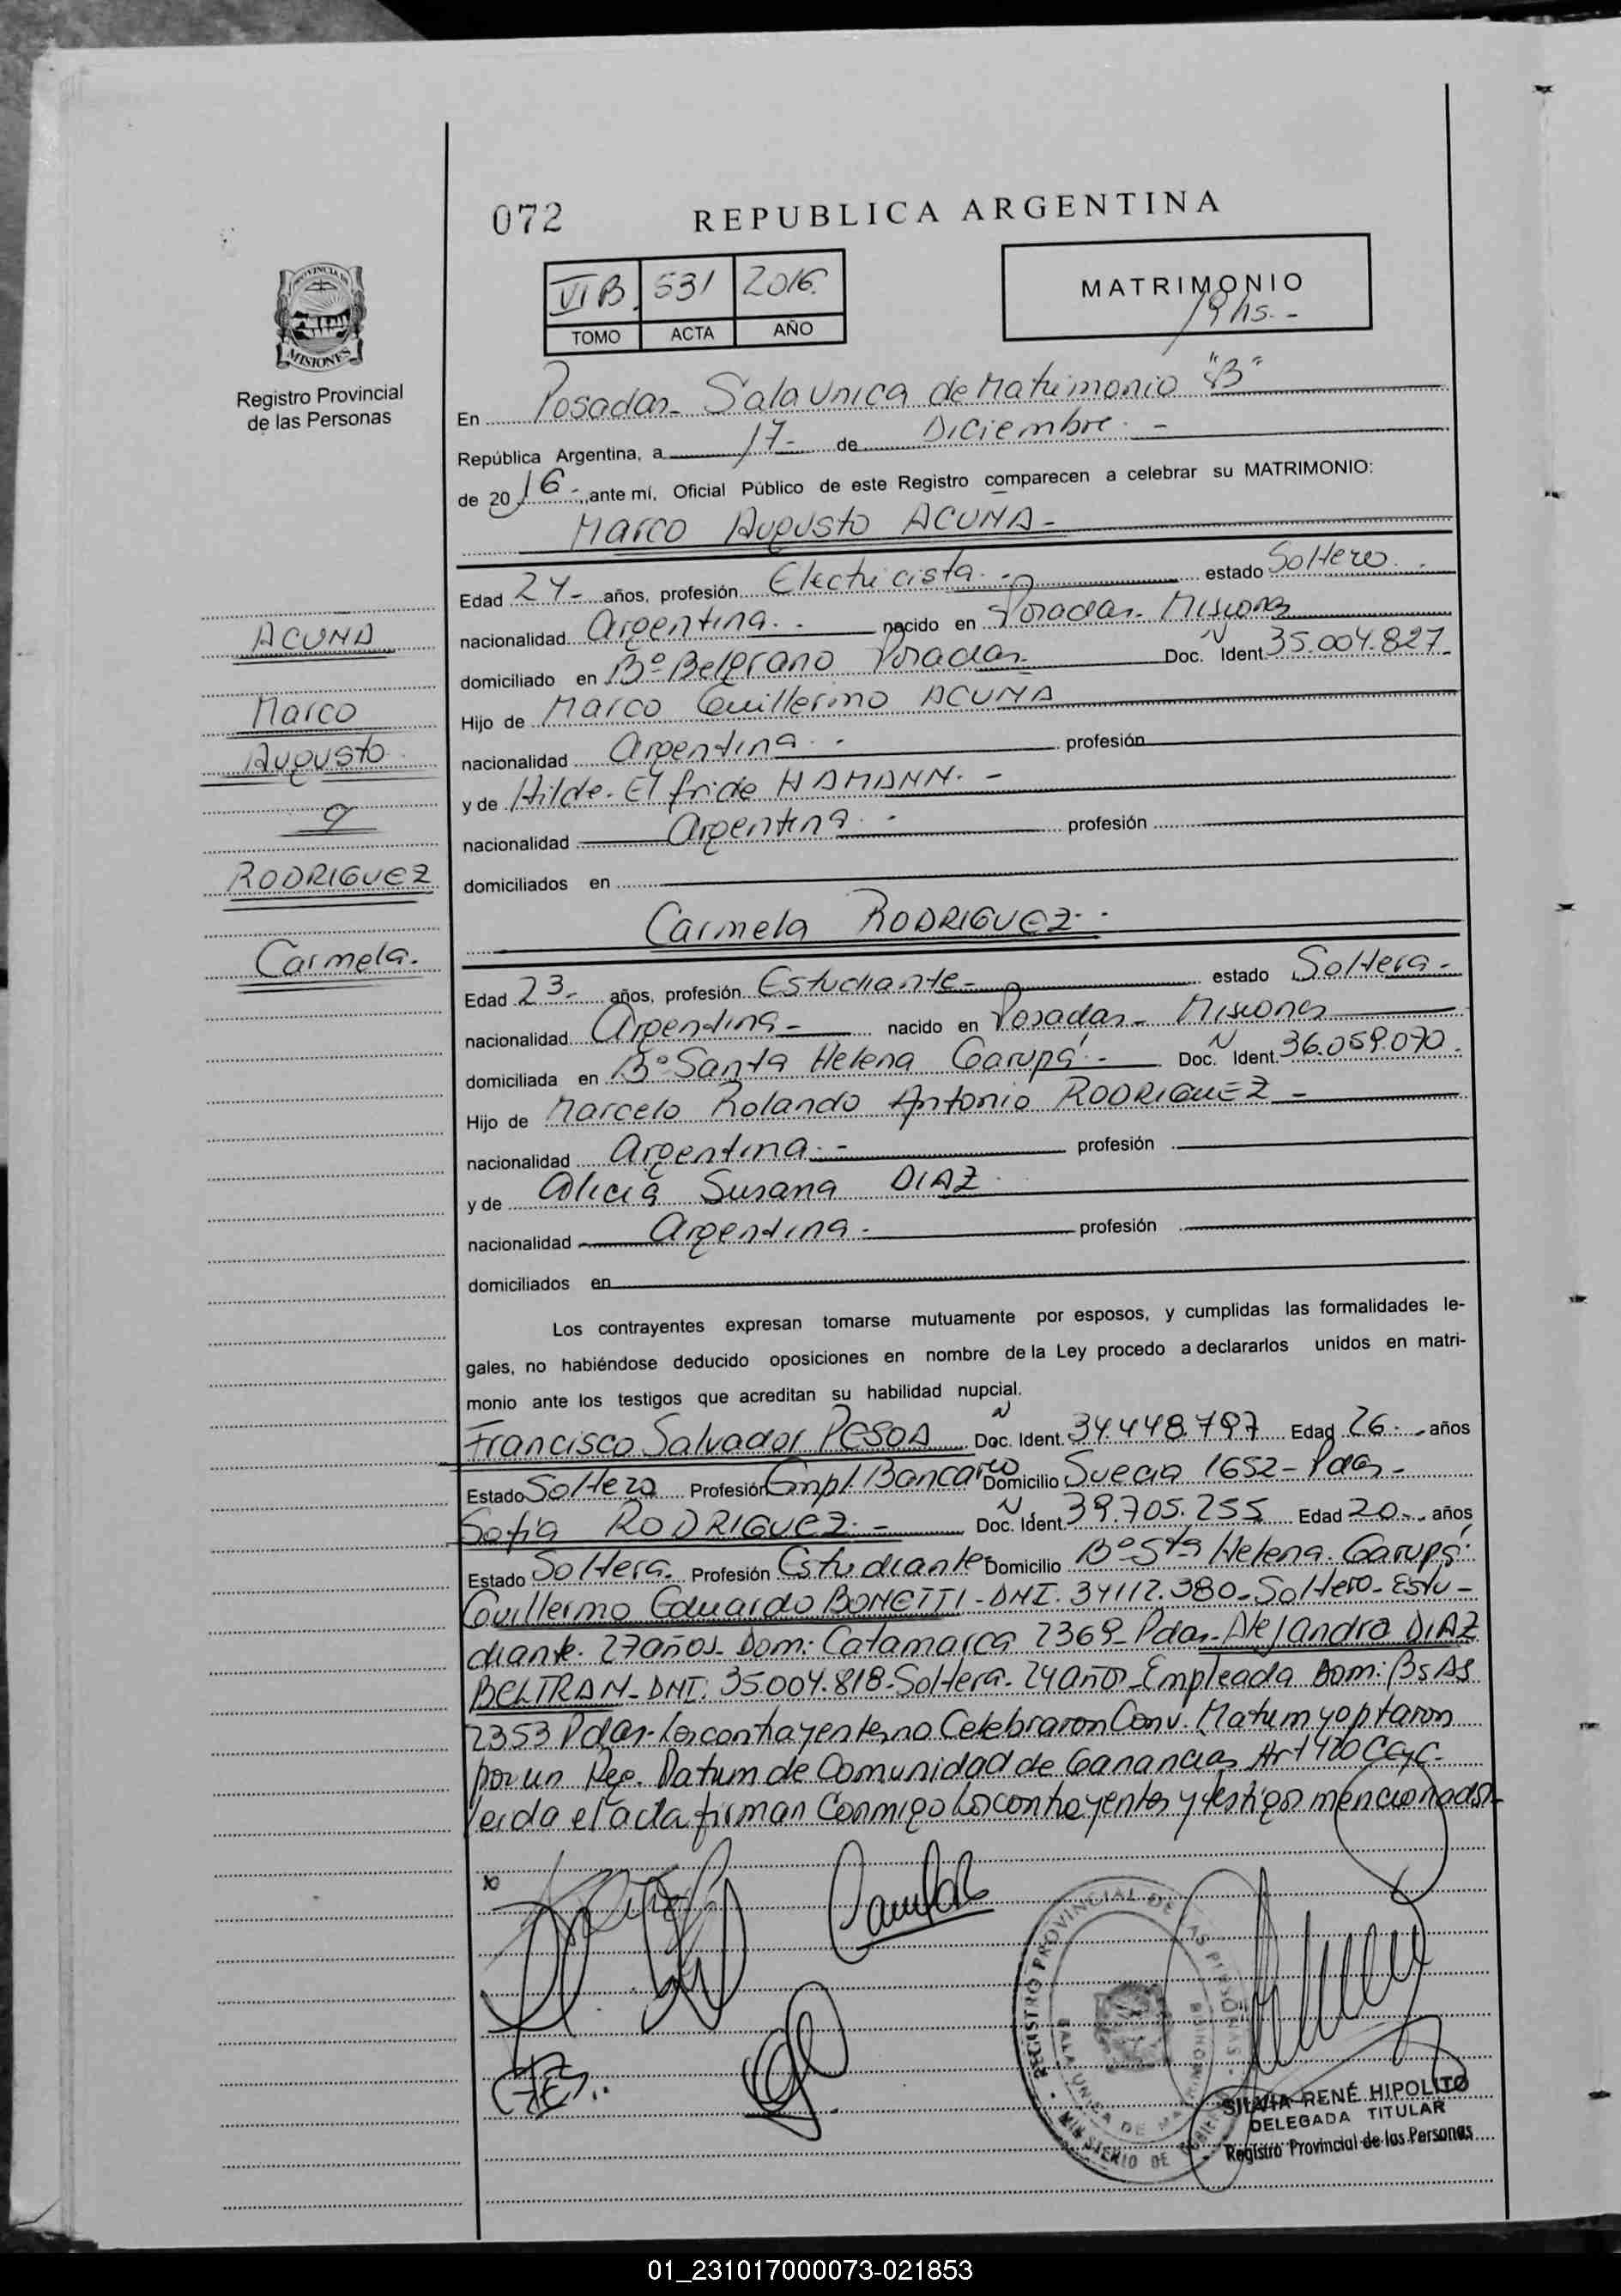 072
REPUBLICA ARGENTINA
VI B 531 2016.
TOMO ACTA AÑO
MATRIMONIO
19 hs. -
PROVINCIA DE
MISIONES
Registro Provincial
de las Personas
En Posadas - Sala Unica de Matrimonio "B"
República Argentina, a 17- de Diciembre. -
de 20 16 -, ante mí, Oficial Público de este Registro comparecen a celebrar su MATRIMONIO:
Marco Augusto ACUÑA -
Edad 24- años, profesión Electricista. - estado Soltero. -
nacionalidad Argentina. - nacido en Posadas - Misiones
domiciliado en Bº Belgrano Posadas Doc. Ident. 35.004.827 -
Hijo de Marco Guillermo ACUÑA
nacionalidad Argentina. - profesión
y de Hilde. Elfride HAMANN. -
nacionalidad Argentina. - profesión
domiciliados en
ACUÑA
Marco
Augusto
y
RODRIGUEZ
Carmela.
Carmela RODRIGUEZ. -
Edad 23- años, profesión Estudiante - estado Soltera -
nacionalidad Argentina - nacido en Posadas - Misiones
domiciliada en Bº Santa Helena Garupá - Doc. Ident. 36.059.070 -
Hijo de Marcelo Rolando Antonio RODRIGUEZ -
nacionalidad Argentina. - profesión
y de Alicia Susana DIAZ.
nacionalidad Argentina. - profesión
domiciliados en
Los contrayentes expresan tomarse mutuamente por esposos, y cumplidas las formalidades le-
gales, no habiéndose deducido oposiciones en nombre de la Ley procedo a declararlos unidos en matri-
monio ante los testigos que acreditan su habilidad nupcial.
Francisco Salvador PESOA Doc. Ident. 34.448.797 Edad 26. - años
Estado Soltero Profesión Empl. Bancario Domicilio Suecia 1652 - Pdas -
Sofia RODRIGUEZ. - Doc. Ident. 39.705.255 Edad 20 - años
Estado Soltera. Profesión Estudiante Domicilio Bº Sta Helena. Garupá.
Guillermo Eduardo BONETTI - DNI. 34112.380 - Soltero - Estu-
diante. 27 años - Dom: Catamarca 2369 - Pdas - Alejandra DIAZ
BELTRAN - DNI. 35.004.818 - Soltera - 24 años - Empleada Dom: Bs As
2353 Pdas - Los contrayentes no Celebraron Conv. Matrim y optaron
por un Reg. Patrim de Comunidad de Ganancias Art 420 CCyC -
leída el acta firman Conmigo los contrayentes y testigos mencionados -
REGISTRO PROVINCIAL DE LAS PERSONAS
SALA UNICA DE MATRIMONIO
MISIONES
MINISTERIO DE
SILVIA RENÉ HIPOLITO
DELEGADA TITULAR
Registro Provincial de las Personas
01_231017000073-021853